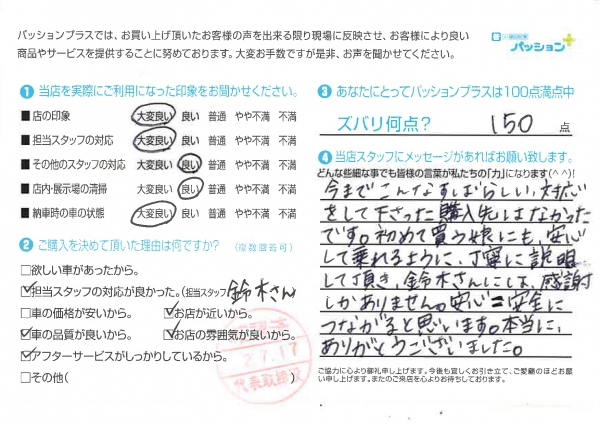 パッションプラスでは、お買い上げ頂いたお客様の声を出来る限り現場に反映させ、お客様により良い
商品やサービスを提供することに努めております。大変お手数ですが是非、お声を聞かせてください。
パッション+
1 当店を実際にご利用になった印象をお聞かせください。
■ 店の印象 大変良い 良い 普通 やや不満 不満
■ 担当スタッフの対応 大変良い 良い 普通 やや不満 不満
■ その他のスタッフの対応 大変良い 良い 普通 やや不満 不満
■ 店内・展示場の清掃 大変良い 良い 普通 やや不満 不満
■ 納車時の車の状態 大変良い 良い 普通 やや不満 不満
2 ご購入を決めて頂いた理由は何ですか? (複数回答可)
□欲しい車があったから。
☑担当スタッフの対応が良かった。(担当スタッフ 鈴木さん
□車の価格が安いから。 ☑お店が近いから。
☑車の品質が良いから。 ☑お店の雰囲気が良いから。
☑アフターサービスがしっかりしているから。
□その他( )
2.7.17
代表取締役
3 あなたにとってパッションプラスは100点満点中
ズバリ何点? 150 点
4 当店スタッフにメッセージがあればお願い致します。
どんな些細な事でも皆様の言葉が私たちの「力」になります(^^)!
今までこんなすばらしい、対応
をして下さった購入先はなかった
です。初めて買う娘にも、安心
して乗れるように、丁寧に説明
して頂き、鈴木さんには、感謝
しかありません。安心=安全に
つながると思います。本当に、
ありがとうございました。
ご協力に心より御礼申し上げます。今後も宜しくお引き立て、ご愛顧のほどお願
い申し上げます。またのご来店を心よりお待ちしております。